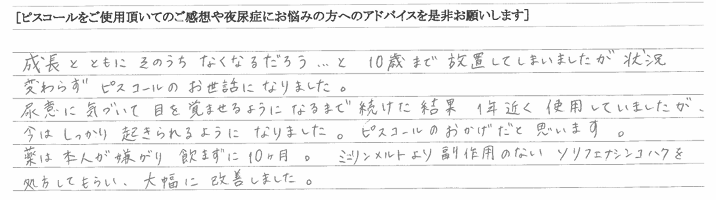 [ピスコールをご使用頂いてのご感想や夜尿症にお悩みの方へのアドバイスを是非お願いします]
成長とともにそのうちなくなるだろう…と 10歳まで放置してしまいましたが 状況
変わらず ピスコールのお世話になりました。
尿意に気づいて目を覚ませるようになるまで続けた結果 1年近く使用していましたが、
今はしっかり起きられるようになりました。ピスコールのおかげだと思います。
薬は本人が嫌がり飲まずに10ヶ月。ミニリンメルトより副作用のないソリフェナシンコハクを
処方してもらい、大幅に改善しました。